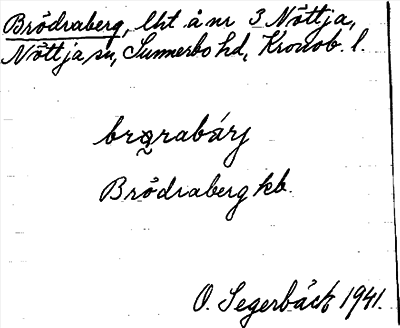 Brödraberg, lht å nr 3 Nöttja,
Nöttja sn, Sunnerbo hd, Kronob. l.
brọ̈rabárj
Brödraberg kb.
O. Segerbäck 1941.